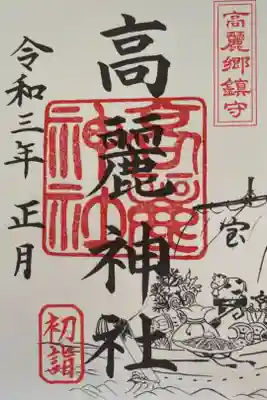 高麗郷鎮守
高麗神社
高麗神社
令和三年 正月
初詣
宝